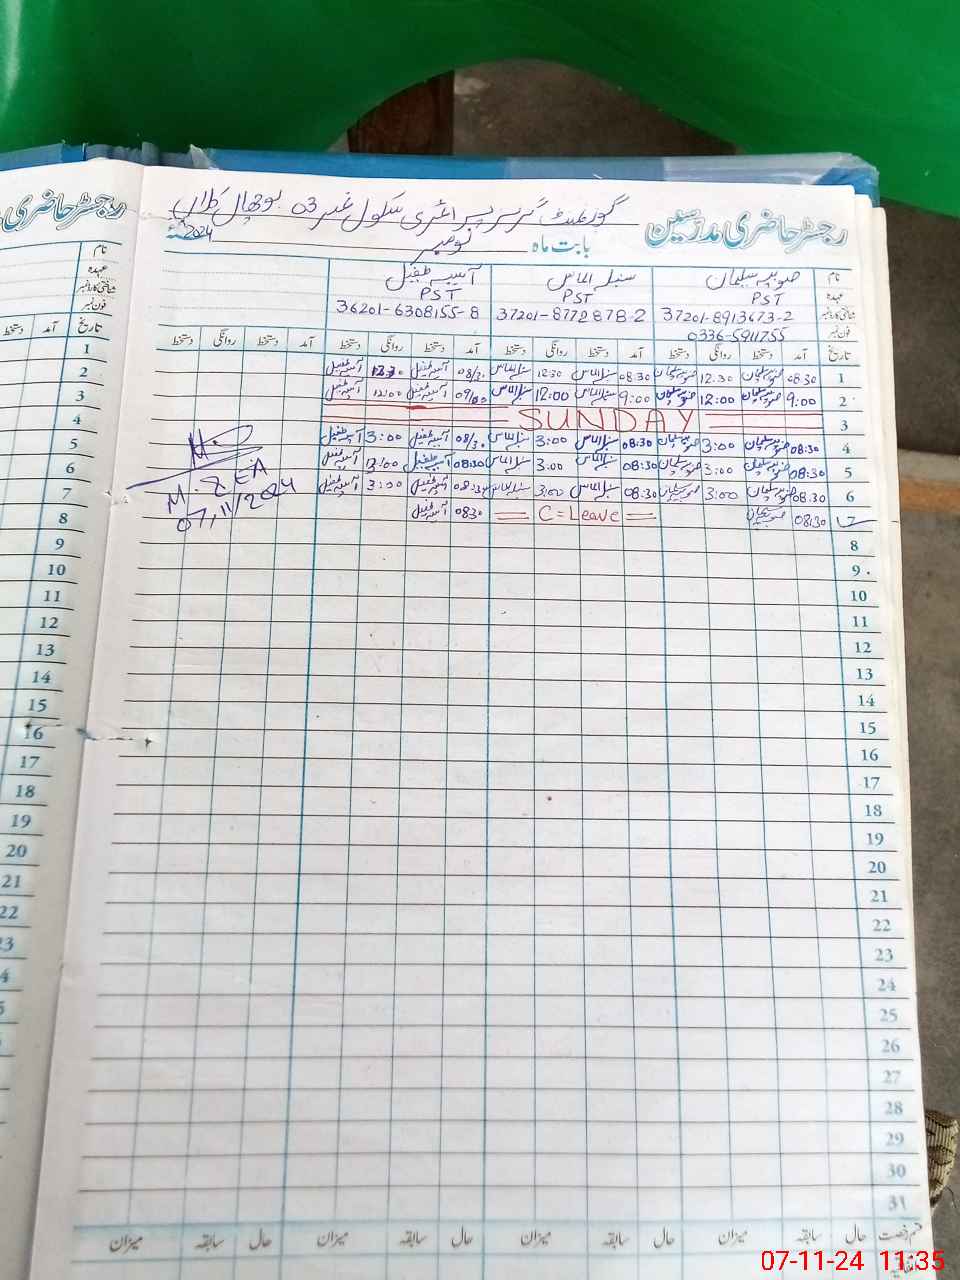 رجسٹر حاضری مدرسین گورنمنٹ گرلز پرائمری سکول نمبر 03 بوچھال کلاں
بابت ماہ نومبر 2024
نام صوبیہ سلیمان سنبل الماس آسیہ طفیل
عہدہ PST PST PST
شناختی کارڈ نمبر 37201-8913673-2 37201-8772878-2 36201-6308155-8
فون نمبر 0336-5911755
تاریخ آمد دستخط روانگی دستخط آمد دستخط روانگی دستخط آمد دستخط روانگی دستخط آمد دستخط روانگی دستخط
1 08:30 صوبیہ سلیمان 12:30 صوبیہ سلیمان 08:30 سنبل الماس 12:30 سنبل الماس 08/30 آسیہ طفیل 12:30 آسیہ طفیل
2 9:00 صوبیہ سلیمان 12:00 صوبیہ سلیمان 9:00 سنبل الماس 12:00 سنبل الماس 09/00 آسیہ طفیل 12:00 آسیہ طفیل
3 SUNDAY
4 08:30 صوبیہ سلیمان 3:00 صوبیہ سلیمان 08:30 سنبل الماس 3:00 سنبل الماس 08/30 آسیہ طفیل 3:00 آسیہ طفیل
5 08:30 صوبیہ سلیمان 3:00 صوبیہ سلیمان 08:30 سنبل الماس 3:00 سنبل الماس 08:30 آسیہ طفیل 3:00 آسیہ طفیل
6 08:30 صوبیہ سلیمان 3:00 صوبیہ سلیمان 08:30 سنبل الماس 3:00 سنبل الماس 08:30 آسیہ طفیل 3:00 آسیہ طفیل
7 08:30 صوبیہ سلیمان C=Leave 0830 آسیہ طفیل
M. ZEA
07/11/2024
8
9
10
11
12
13
14
15
16
17
18
19
20
21
22
23
24
25
26
27
28
29
30
31
قسم رخصت حال سابقہ میزان حال سابقہ میزان حال سابقہ میزان حال سابقہ میزان
اتفاقیہ
رجسٹر حاضری
نام
عہدہ
شناختی کارڈ نمبر
فون نمبر
تاریخ آمد دستخط
1
2
3
4
5
6
7
8
9
10
11
12
13
14
15
16
17
18
19
20
21
22
23
07-11-24 11:35